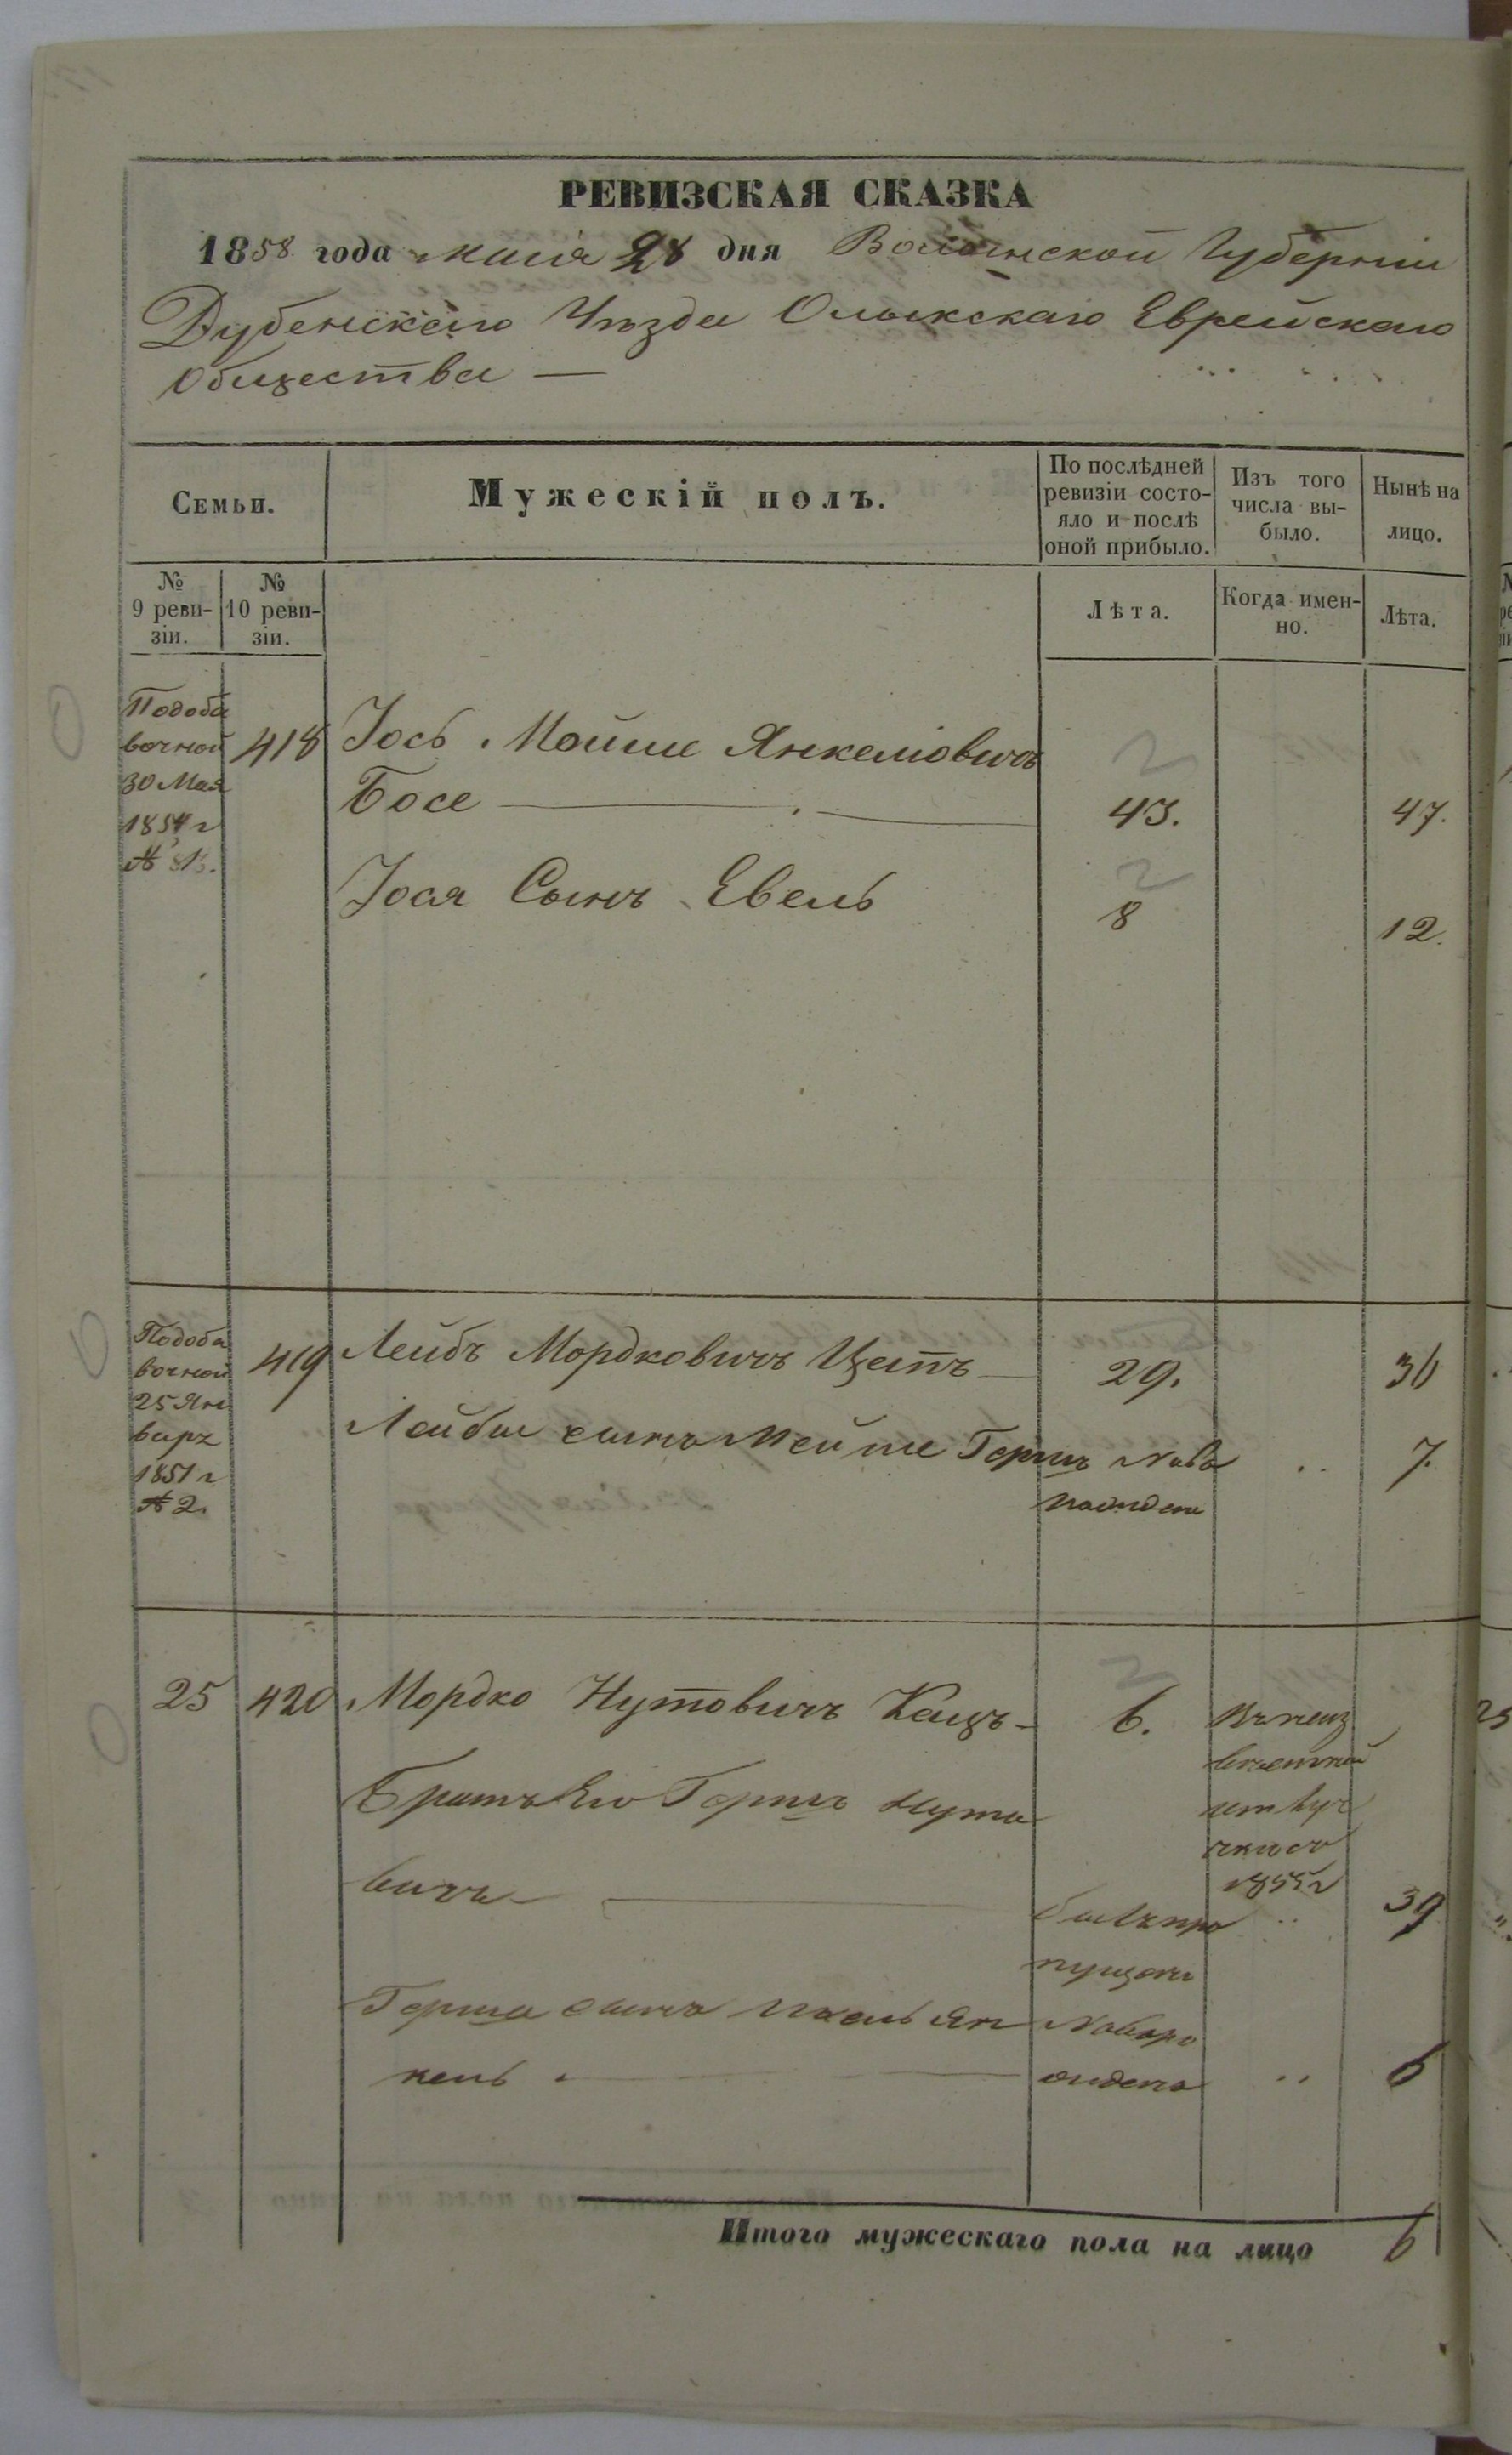 РЕВИЗСКАЯ СКАЗКА
1858 года маія 28 дня Волынской Губерніи
Дубенскаго Уѣзда Олыкскаго Еврейскаго
Общества —
Семьи.
Мужескій полъ.
По послѣдней ревизіи состо-
яло и послѣ
оной прибыло.
Изъ того
числа вы-
было.
Нынѣ на
лицо.
№
9 реви-
зіи.
№
10 реви-
зіи.
Лѣта.
Когда имен-
но.
Лѣта.
Подоба
вочной
30 Мая
1854 г
418
Іось Мойше Янкеліовичъ
Босе
43.
47.
Іося Сынъ Евель
8
12.
Подоба
вочной
25 Ян
варя
1851 г
№ 2.
419
Лейбъ Мордковичъ Цепъ
29.
36
Лейбы сынъ Мейше Гершъ
7.
25
420
Мордко Нутовичъ Кацъ
6.
Въ неиз
вѣстной
отлуч
кѣ съ
1855 г
Братъ Его Гершъ Нуто
вичъ
былъ про
пущенъ
39
Герша сынъ Ицель Ян
кель
Новоро
жденъ
6
Итого мужескаго пола на лицо
6